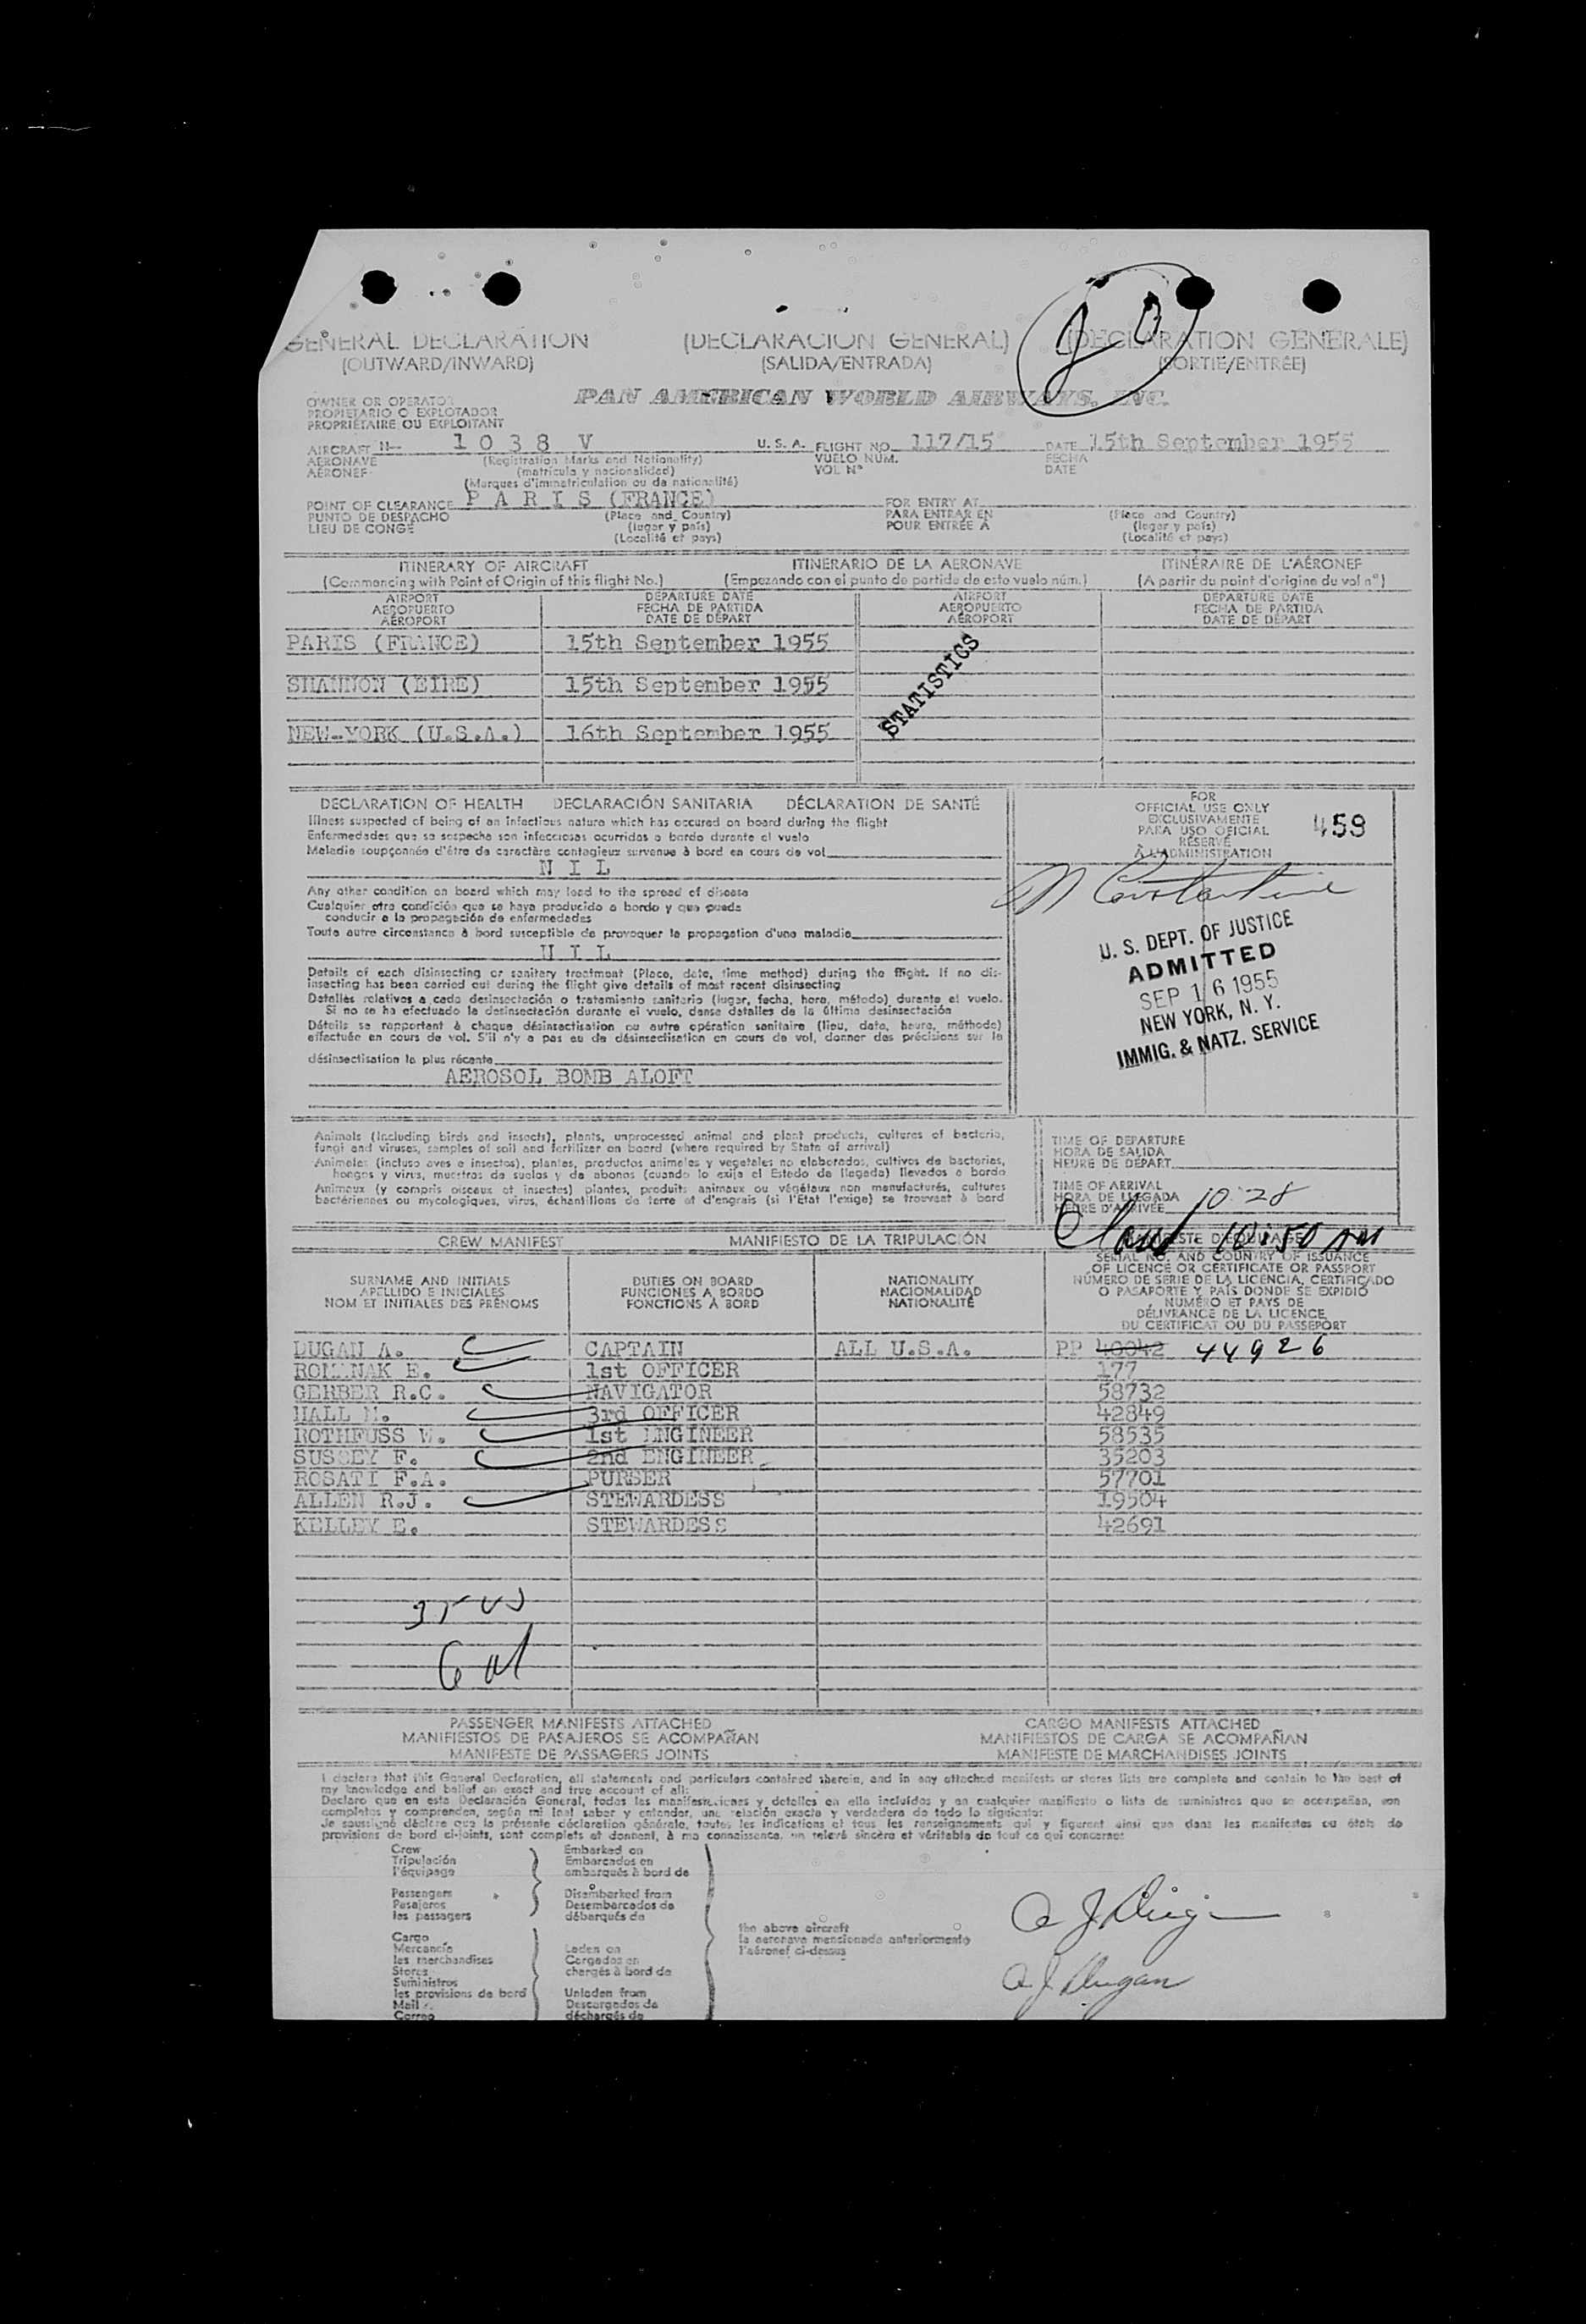 GENERAL DECLARATION (DECLARACION GENERAL) (DECLARATION GENERALE)
(OUTWARD/INWARD) (SALIDA/ENTRADA) (SORTIE/ENTRÉE)
OWNER OR OPERATOR
PROPIETARIO O EXPLOTADOR
PROPRIÉTAIRE OU EXPLOITANT
PAN AMERICAN WORLD AIRWAYS, INC.
AIRCRAFT N- 1 0 3 8 V U.S.A. FLIGHT NO. 117/15 DATE 15th September 1955
AERONAVE (Registration Marks and Nationality) VUELO NÚM. FECHA
AÉRONEF (matrícula y nacionalidad) VOL Nº DATE
(Marques d'immatriculation ou de nationalité)
POINT OF CLEARANCE P A R I S (FRANCE) FOR ENTRY AT
PUNTO DE DESPACHO (Place and Country) PARA ENTRAR EN (Place and Country)
LIEU DE CONGÉ (lugar y país) POUR ENTRÉE A (lugar y país)
(Localité et pays) (Localité et pays)
ITINERARY OF AIRCRAFT ITINERARIO DE LA AERONAVE ITINÉRAIRE DE L'AÉRONEF
(Commencing with Point of Origin of this flight No.) (Empezando con el punto de partida de este vuelo núm.) (A partir du point d'origine du vol nº)
AIRPORT DEPARTURE DATE AIRPORT DEPARTURE DATE
AEROPUERTO FECHA DE PARTIDA AEROPUERTO FECHA DE PARTIDA
AÉROPORT DATE DE DÉPART AÉROPORT DATE DE DÉPART
PARIS (FRANCE) 15th September 1955
SHANNON (EIRE) 15th September 1955
NEW-YORK (U.S.A.) 16th September 1955
STATISTICS
DECLARATION OF HEALTH DECLARACIÓN SANITARIA DÉCLARATION DE SANTÉ
Illness suspected of being of an infectious nature which has occured on board during the flight
Enfermedades que se sospecha son infecciosas ocurridas a bordo durante el vuelo
Maladie soupçonnée d'être de caractère contagieux survenue à bord en cours de vol
N I L
Any other condition on board which may lead to the spread of disease
Cualquier otra condición que se haya producido a bordo y que pueda
conducir a la propagación de enfermedades
Toute autre circonstance à bord susceptible de provoquer la propagation d'une maladie
N I L
Details of each disinsecting or sanitary treatment (Place, date, time method) during the flight. If no dis-
insecting has been carried out during the flight give details of most recent disinsecting
Detalles relativos a cada desinsectación o tratamiento sanitario (lugar, fecha, hora, método) durante el vuelo.
Si no se ha efectuado la desinsectación durante el vuelo, dense detalles de la última desinsectación
Détails se rapportant à chaque désinsectisation ou autre opération sanitaire (lieu, date, heure, méthode)
effectuée en cours de vol. S'il n'y a pas eu de désinsectisation en cours de vol, donner des précisions sur la
désinsectisation la plus récente
AEROSOL BOMB ALOFT
FOR
OFFICIAL USE ONLY
EXCLUSIVAMENTE
PARA USO OFICIAL
RÉSERVÉ
À L'ADMINISTRATION
459
N Constantine
U. S. DEPT. OF JUSTICE
ADMITTED
SEP 16 1955
NEW YORK, N. Y.
IMMIG. & NATZ. SERVICE
Animals (including birds and insects), plants, unprocessed animal and plant products, cultures of bacteria,
fungi and viruses, samples of soil and fertilizer on board (where required by State of arrival)
Animales (incluso aves e insectos), plantas, productos animales y vegetales no elaborados, cultivos de bacterias,
hongos y virus, muestras de suelos y de abonos (cuando lo exija el Estado de llegada) llevados a bordo
Animaux (y compris oiseaux et insectes) plantes, produits animaux ou végétaux non manufacturés, cultures
bactériennes ou mycologiques, virus, échantillons de terre et d'engrais (si l'Etat l'exige) se trouvant à bord
TIME OF DEPARTURE
HORA DE SALIDA
HEURE DE DÉPART
TIME OF ARRIVAL
HORA DE LLEGADA
HEURE D'ARRIVÉE 10:28
10:50 AM
CREW MANIFEST MANIFIESTO DE LA TRIPULACIÓN MANIFESTE D'ÉQUIPAGE
SURNAME AND INITIALS
APELLIDO E INICIALES
NOM ET INITIALES DES PRÉNOMS
DUTIES ON BOARD
FUNCIONES A BORDO
FONCTIONS À BORD
NATIONALITY
NACIONALIDAD
NATIONALITÉ
SERIAL NO. AND COUNTRY OF ISSUANCE
OF LICENCE OR CERTIFICATE OR PASSPORT
NÚMERO DE SERIE DE LA LICENCIA, CERTIFICADO
O PASAPORTE Y PAÍS DONDE SE EXPIDIÓ
NUMÉRO ET PAYS DE
DÉLIVRANCE DE LA LICENCE,
DU CERTIFICAT OU DU PASSEPORT
DUGAN A. CAPTAIN ALL U.S.A. PP 40042 44926
ROMINAK E. 1st OFFICER 177
GERBER R.C. NAVIGATOR 58732
HALL M. 3rd OFFICER 42849
ROTHFUSS W. 1st ENGINEER 58535
SUSCEY F. 2nd ENGINEER 35203
ROSATI F.A. PURSER 57701
ALLEN R.J. STEWARDESS 19504
KELLEY E. STEWARDESS 42691
PASSENGER MANIFESTS ATTACHED CARGO MANIFESTS ATTACHED
MANIFIESTOS DE PASAJEROS SE ACOMPAÑAN MANIFIESTOS DE CARGA SE ACOMPAÑAN
MANIFESTE DE PASSAGERS JOINTS MANIFESTE DE MARCHANDISES JOINTS
I declare that this General Declaration, all statements and particulars contained therein, and in any attached manifests or stores lists are complete and contain to the best of
my knowledge and belief an exact and true account of all:
Declaro que en esta Declaración General, todas las manifestaciones y detalles en ella incluídos y en cualquier manifiesto o lista de suministros que se acompañan, son
completos y comprenden, según mi leal saber y entender, una relación exacta y verdadera de todo lo siguiente:
Je soussigné déclare que la présente déclaration générale, toutes les indications et tous les renseignements qui y figurent ainsi que dans les manifestes ou états de
provisions de bord ci-joints, sont complets et donnent, à ma connaissance, un relevé sincère et véritable de tout ce qui concerne:
Crew Embarked on
Tripulación Embarcados en
l'équipage embarqués à bord de
Passengers Disembarked from
Pasajeros Desembarcados de
les passagers débarqués de
the above aircraft
la aeronave mencionada anteriormente
l'aéronef ci-dessus
Cargo
Mercancía Laden on
les marchandises Cargados en
Stores chargés à bord de
Suministros
les provisions de bord Unladen from
Mail Descargados de
Correo déchargés de
A J Dugan
A J Dugan